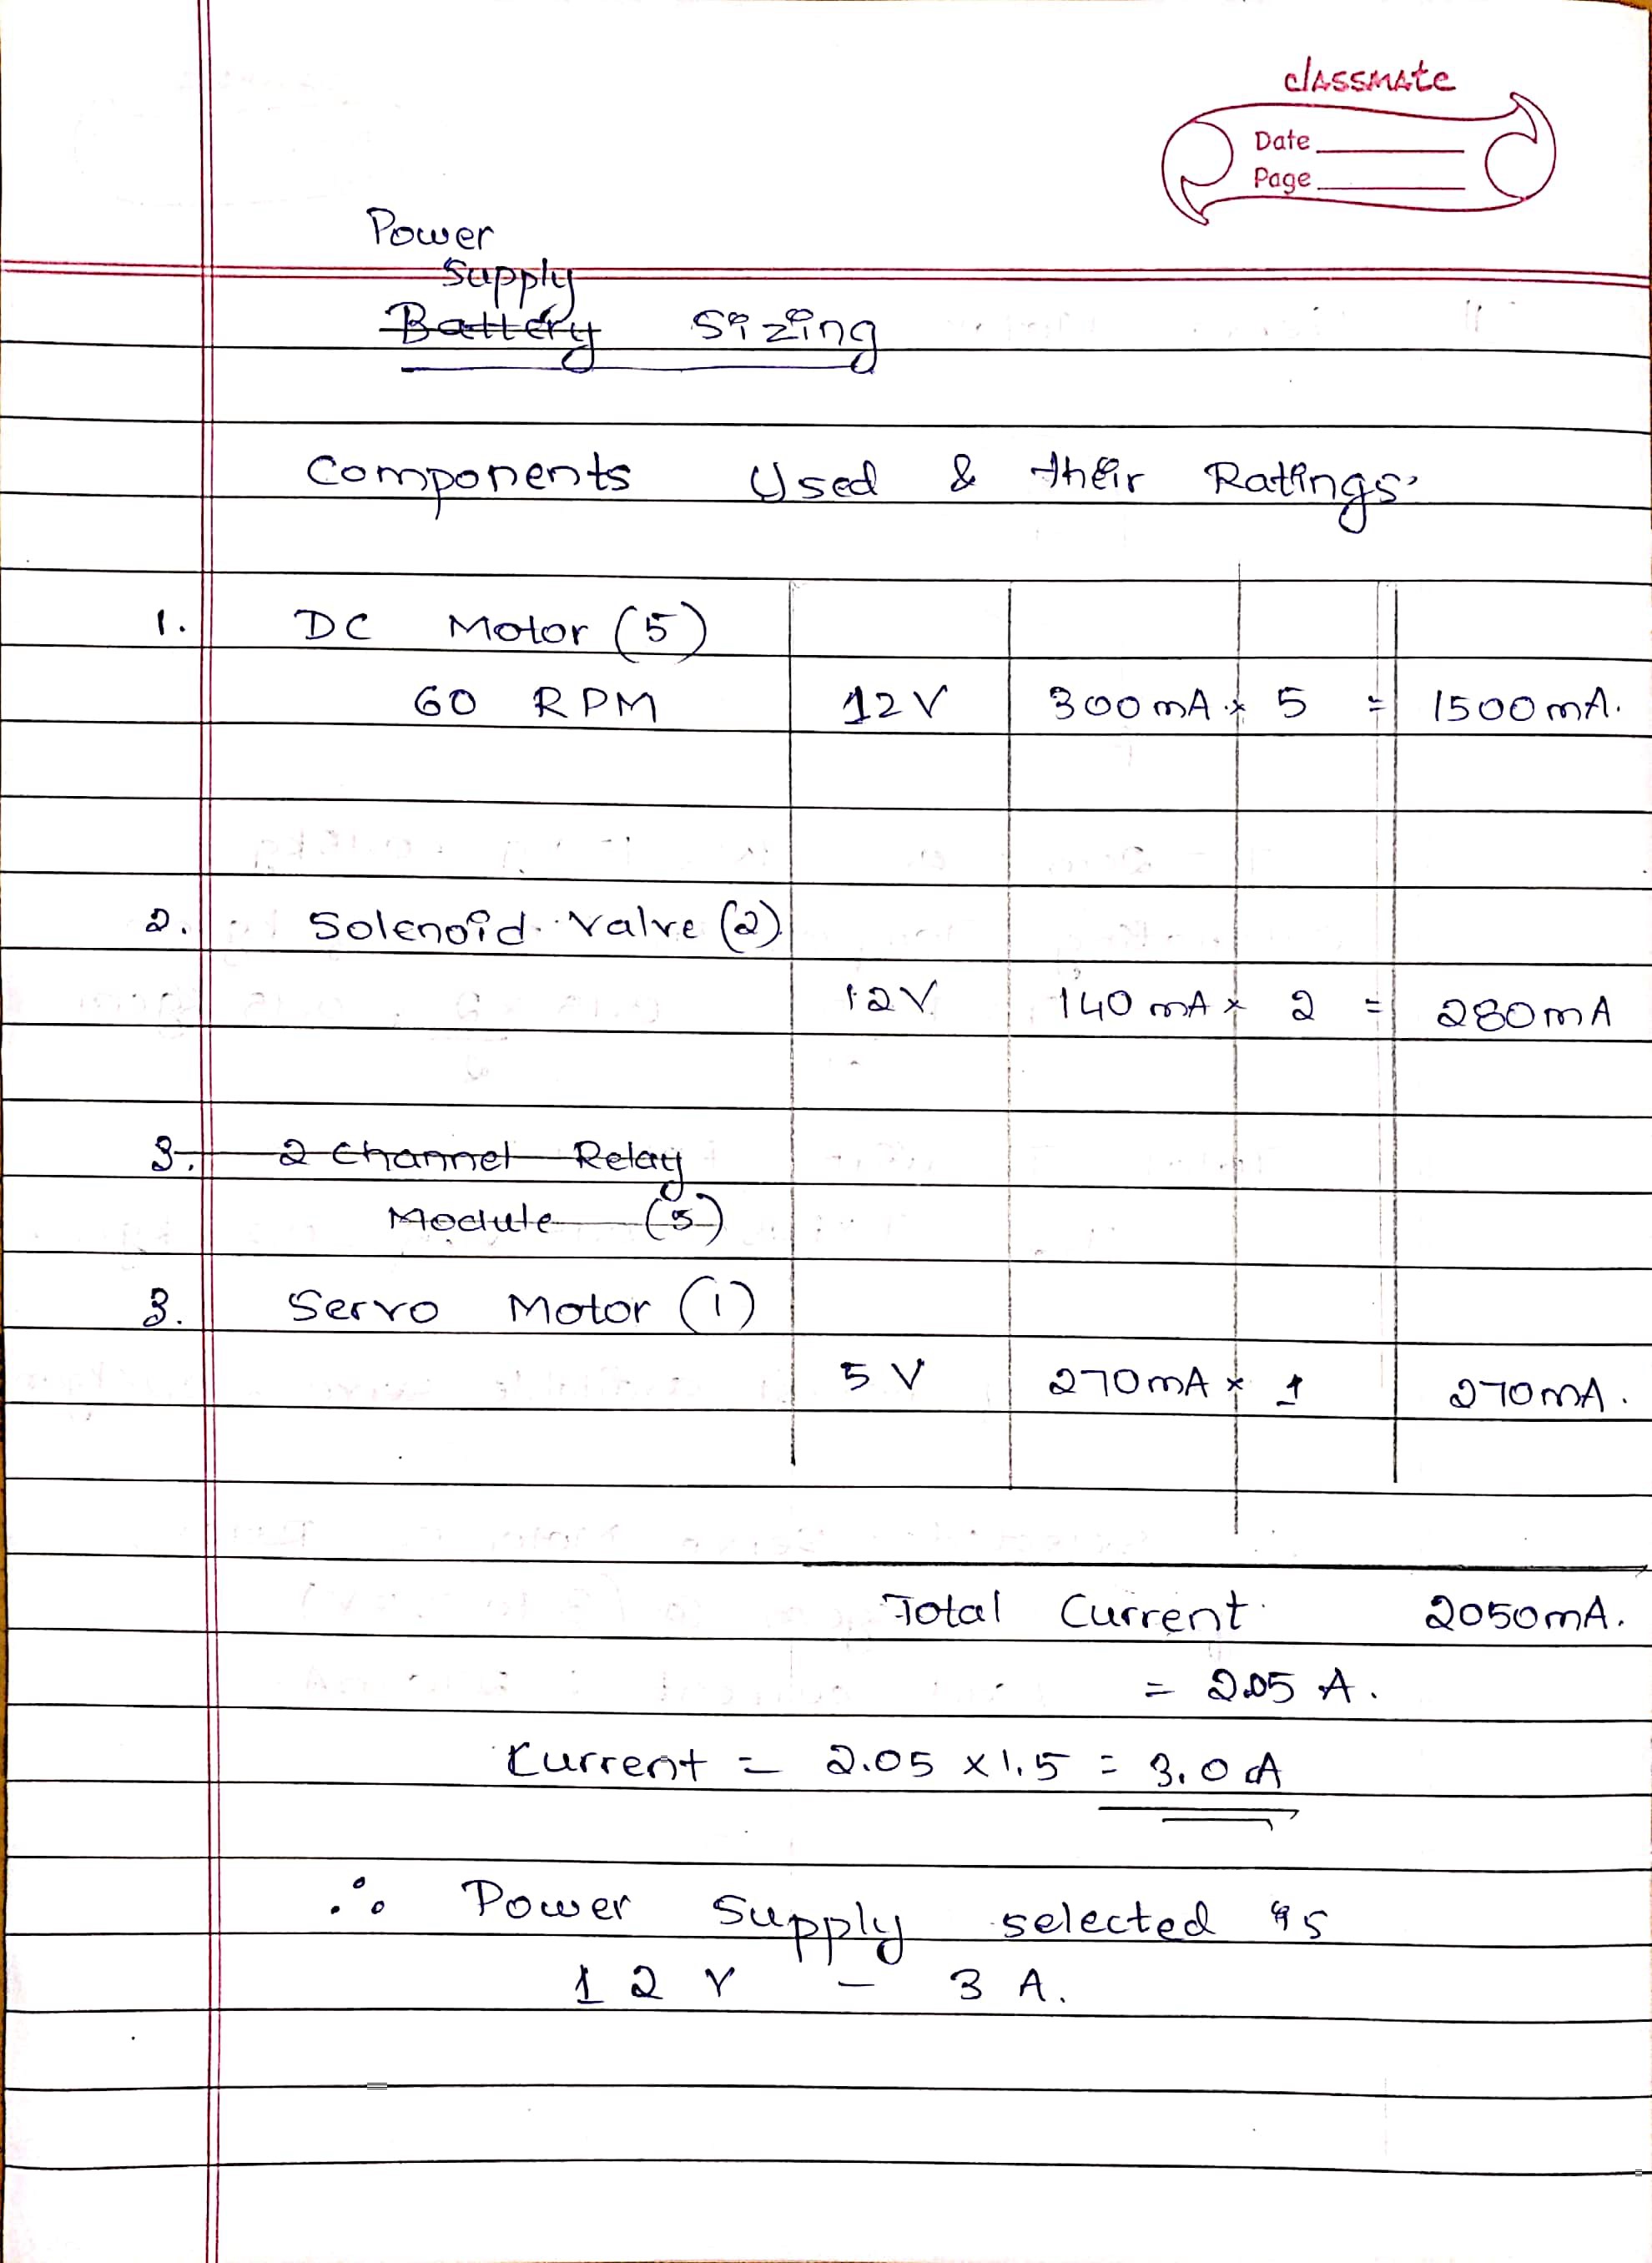 classmate
Date
Page
Power
Supply
Battery Sizing
Components Used & their Ratings.
1. DC Motor (5)
60 RPM 12V 300mA × 5 = 1500mA.
2. Solenoid Valve (2)
12V 140mA × 2 = 280mA
3. 2 Channel Relay
Module (5)
3. Servo Motor (1)
5V 270mA × 1 270mA.
Total Current 2050mA.
= 2.05 A.
Current = 2.05 × 1.5 = 3.0 A
∴ Power Supply selected is
12V - 3A.